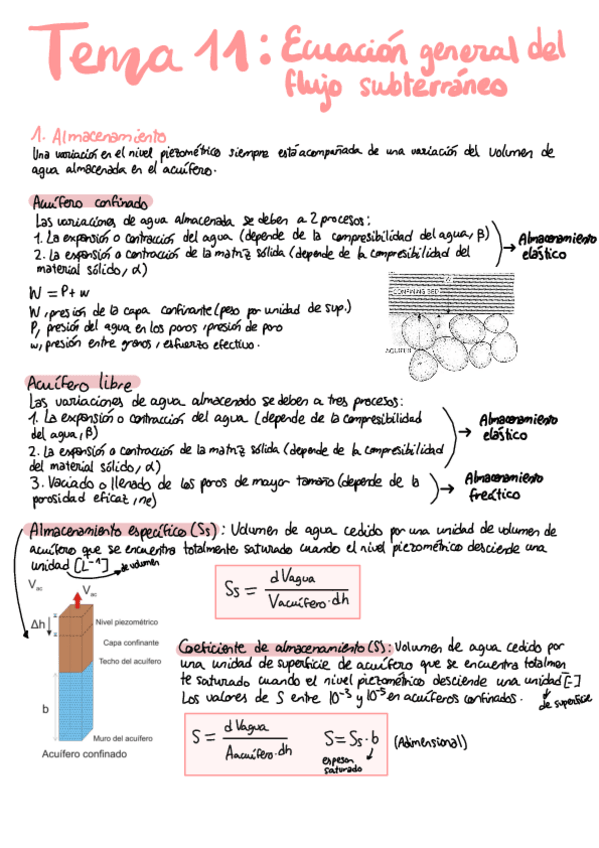 Tema 11: Ecuación general del
flujo subterráneo
1. Almacenamiento
Una variación en el nivel piezométrico siempre está acompañada de una variación del volumen de
agua almacenada en el acuífero.
Acuífero confinado
Las variaciones de agua almacenada se deben a 2 procesos:
1. La expansión o contracción del agua (depende de la compresibilidad del agua, β)
2. La expansión o contracción de la matriz sólida (depende de la compresibilidad del
material sólido, α)
→ Almacenamiento
elástico
W = P + w
W, presión de la capa confinante (peso por unidad de sup.)
P, presión del agua en los poros, presión de poro
w, presión entre granos, esfuerzo efectivo.
CONFINING BED
AQUIFER
Acuífero libre
Las variaciones de agua almacenado se deben a tres procesos:
1. La expansión o contracción del agua (depende de la compresibilidad
del agua, β)
2. La expansión o contracción de la matriz sólida (depende de la compresibilidad
del material sólido, α)
→ Almacenamiento
elástico
3. Vaciado o llenado de los poros de mayor tamaño (depende de la
porosidad eficaz, ne)
→ Almacenamiento
freático
Almacenamiento específico (Ss): Volumen de agua cedido por una unidad de volumen de
acuífero que se encuentra totalmente saturado cuando el nivel piezométrico desciende una
unidad [L⁻¹]
de volumen
Ss = dVagua / Vacuífero · dh
Vac
Vac
Δh
Nivel piezométrico
Capa confinante
Techo del acuífero
b
Muro del acuífero
Acuífero confinado
Coeficiente de almacenamiento (S): Volumen de agua cedido por
una unidad de superficie de acuífero que se encuentra totalmen
te saturado cuando el nivel piezométrico desciende una unidad [-]
Los valores de S entre 10⁻³ y 10⁻⁵ en acuíferos confinados.
de superficie
S = dVagua / Aacuífero · dh
S = Ss · b
(Adimensional)
espesor
saturado